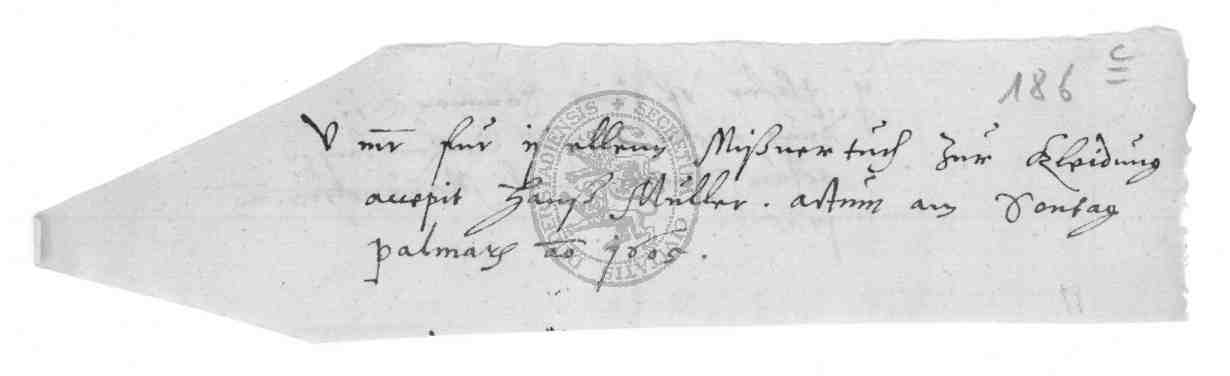 186 c
V mr für ij ellenn Mißner tuch zur Kleidung
accepit Hanß Müller. actum am Sontag
palmarum ao 1605.
SECRETI CIVITATIS